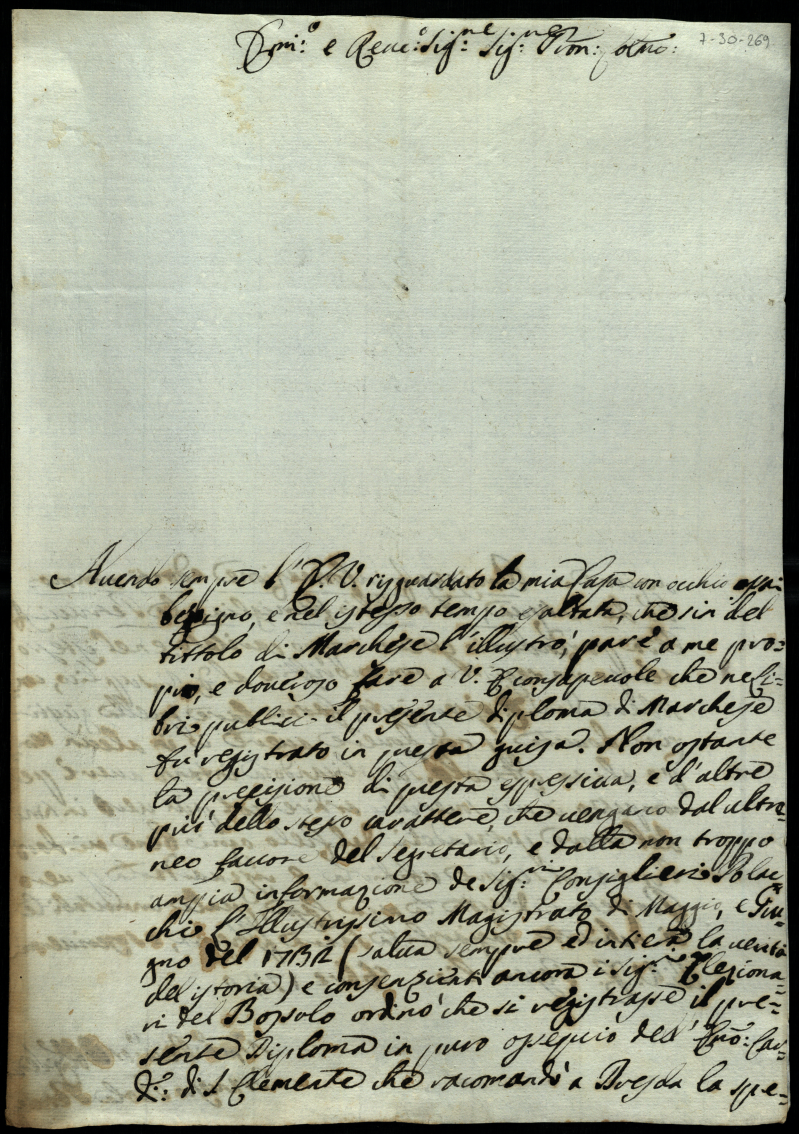 Emi:º e Reve:º Sig:ne Sig:ne Pron: Colmo:
7-30-269
Avendo sempre l'E. V. risguardato la mia Casa con occhio assai
benigno, e nel istesso tempo esaltata, che sin del
tittolo di Marchese l'illustrò, pare a me pro=
prio, e doveroso fare a V. E. consapevole che ne Li=
bri publici il presente diploma di Marchese
fu registrato in questa guisa. Non ostante
la precisione di questa espressiva, e d'altre
più dello stesso carattere, che vengano dal ultro=
neo favore del Segretario, e dalla non troppo
ampia informazione de Sig:ri Consiglieri Polac=
chi l'Illustrissimo Magistrato di Maggio, e Giu=
gno del 1732 (salva sempre ed intiera la verità
del istoria) e consenzienti ancora i Sig:ri Eleziona=
ri del Bossolo ordinò che si registrasse il pre=
sente Diploma in puro ossequio dell' Emo: Car=
d:e: di S Clemente che racomandò a Bresda la spe=